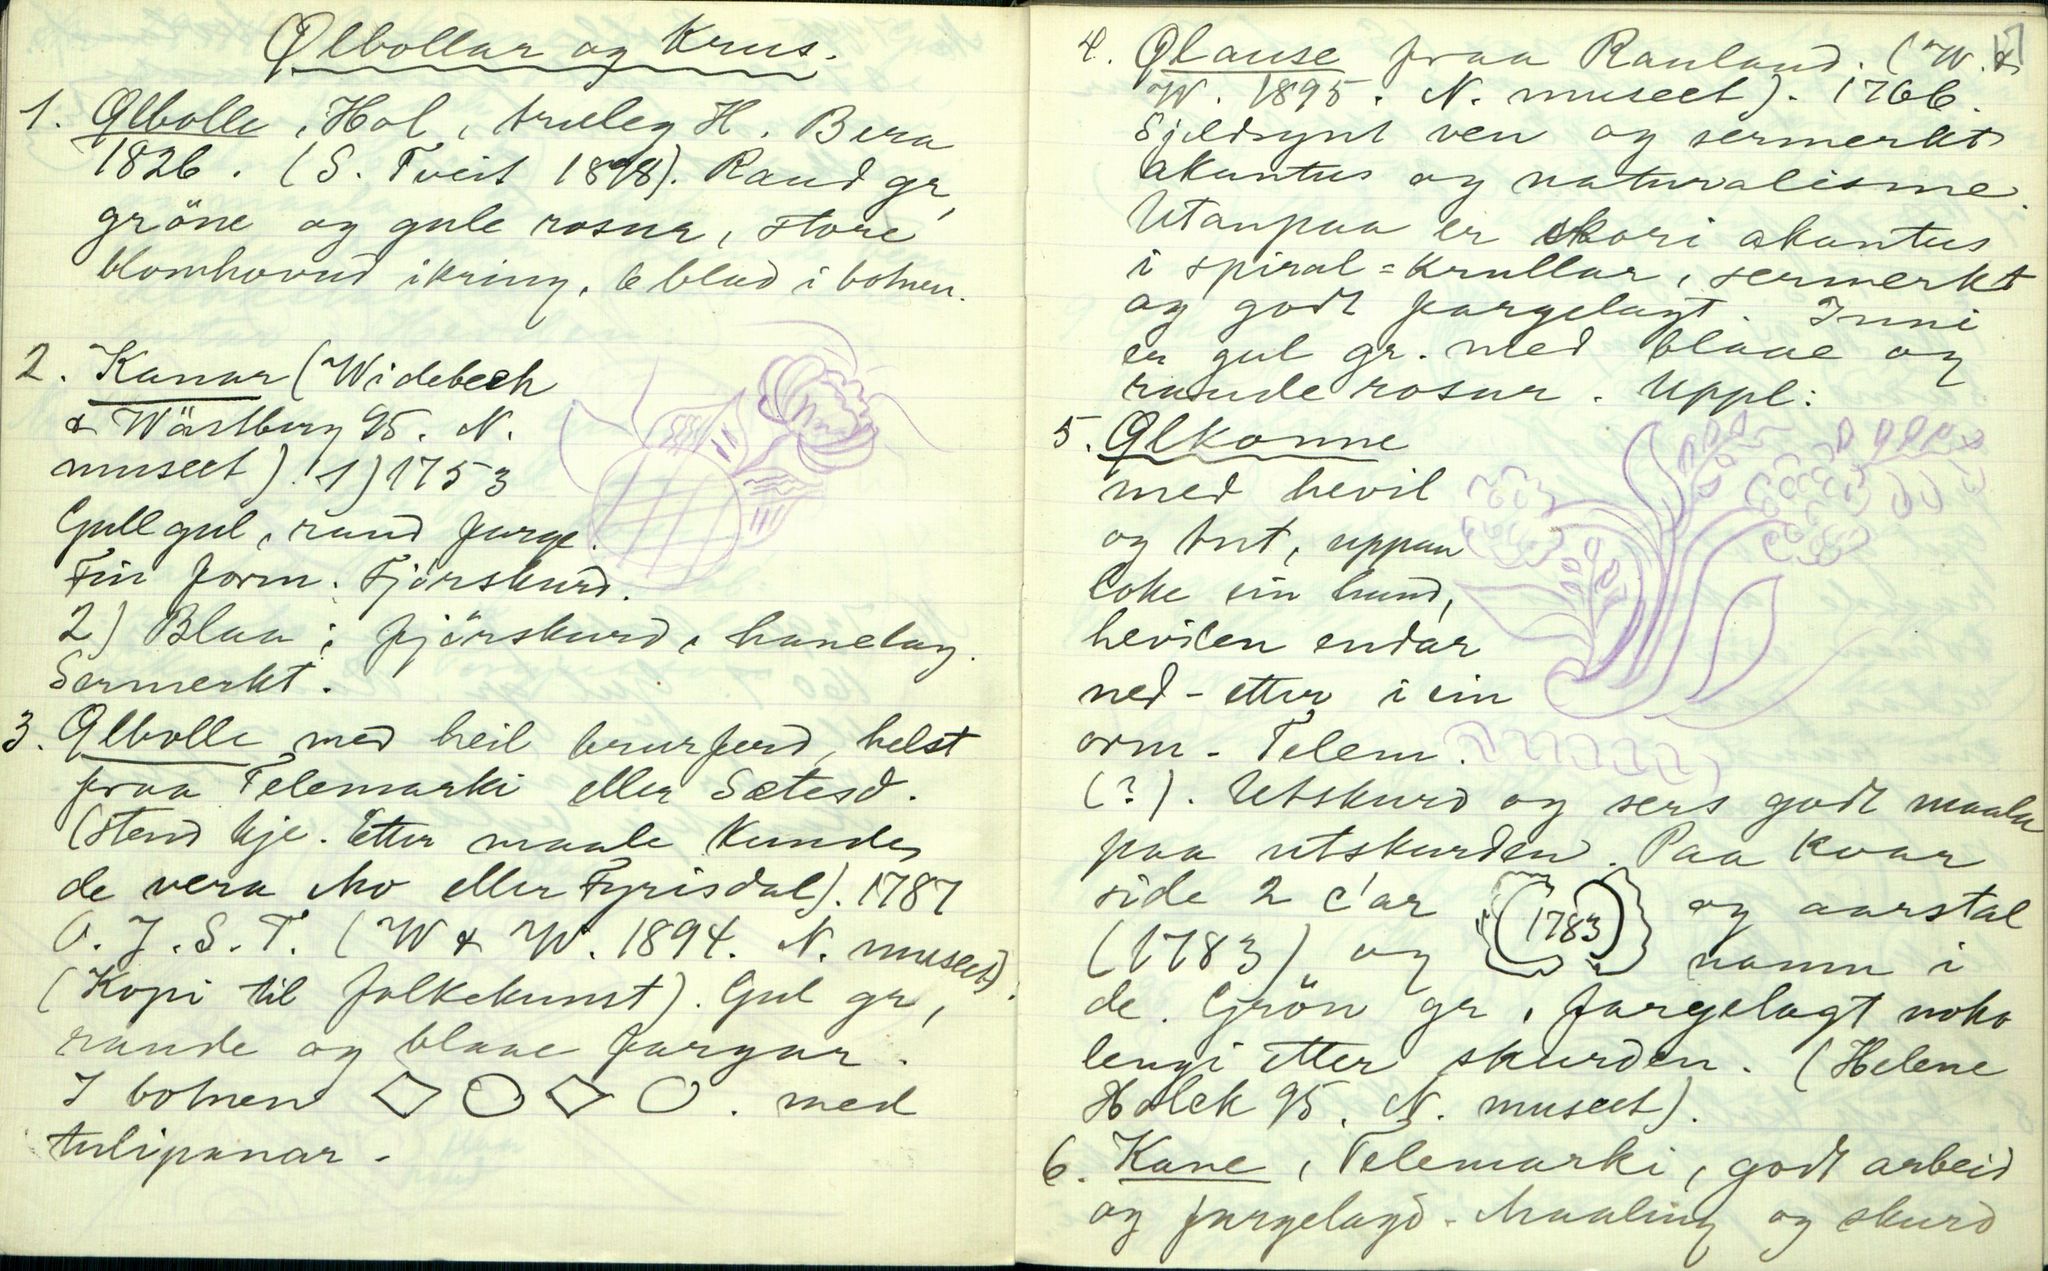 Ølbollar og Krus.
1. Ølbolle, Hol, truleg H. Bera
1826. (S. Tveit 1898). Raud gr,
gröne og gule rosur, store
blomhovud ikring, 6 blad i botnen.
2. Kanar (Widebeck
& Wästberg 95. N.
museet). 1) 1753
Gullgul, raud farge.
Fin form. Fjørskurd.
2) Blaa; fjörskurd, hanelag.
Sermerkt.
3. Ølbolle med heil brurferd, helst
fraa Telemarki eller Sætesd.
(stend kje. Etter maale kunde
de vera Mo eller Fyrisdal). 1787
O. J. S. T. (W & W. 1894. N. museet).
(Kopi til folkekunst). Gul gr,
raude og blaae fargar.
I botnen . med
tulipanar.
4. Ølause fraa Rauland. (W. &
W. 1895. N. museet). 1766.
Sjeldsynt ven og sermerkt
akantus og naturalisme.
Utanpaa er skori akantus
i spiral=krullar, sermerkt
og godt fargelagt. Inni
er gul gr. med blaae og
raude rosur. Uppl:
5. Ølkanne
med hevil
og tut, uppaa
loke ein hund,
hevilen endar
ned-etter i ein
orm - Telem.
(?). Utskurd og sers godt maala
paa utskurden. Paa kvar
side 2 c'ar 1783 og aarstal
(1783) og namn i
de. Grön gr, fargelagt noko
lengi etter skurden. (Helene
Holck 95. N. museet).
6. Kane, Telemarki, godt arbeid
og fargelagd. Maaling og skurd